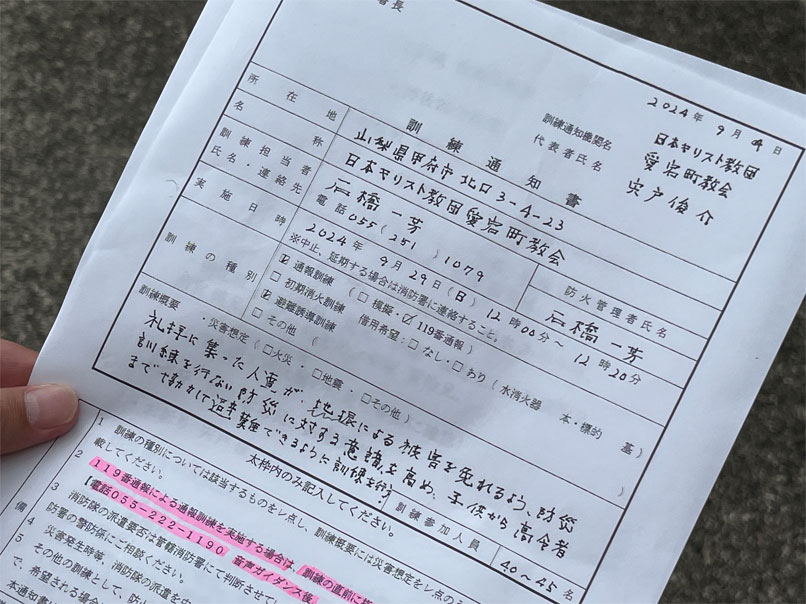 署長
2024年 9月 4日
訓練通知機関名 日本キリスト教団
愛宕町教会
代表者氏名 宍戸俊介
訓練通知書
所在地 山梨県甲府市北口3-4-23
名称 日本キリスト教団愛宕町教会
訓練担当者氏名・連絡先 石橋一芳
電話 055(251)1079
防火管理者氏名 石橋一芳
実施日時 2024年 9月 29日(日) 12時00分~12時20分
※中止、延期する場合は消防署に連絡すること。
訓練の種別
☑通報訓練(□模擬・☑119番通報)
□初期消火訓練 借用希望:□なし・□あり(水消火器 本・標的 基)
☑避難誘導訓練
□その他( )
訓練概要 ・災害想定(□火災・□地震・□その他)
礼拝に集った人達が、地振による被害を免れるよう、防災
訓練を行ない防災に対する意識を高め、子供から高令者
まで
できるように訓練を行う
訓練参加人員 40~45名
太枠内のみ記入してください。
備
1 訓練の種別については該当するものをレ点し、訓練概要には災害想定をレ点のう
載してください。
2 119番通報による通報訓練を実施する場合は、訓練の直前に
【電話055-222-1190 音声ガイダンス後、
3 消防隊の派遣要否は管轄消防署にて判断させて
防署の警防係にご相談ください。
4 災害発生時等、消防隊の派遣を
5 その他の訓練として、防
で、希望される場合
本通知書